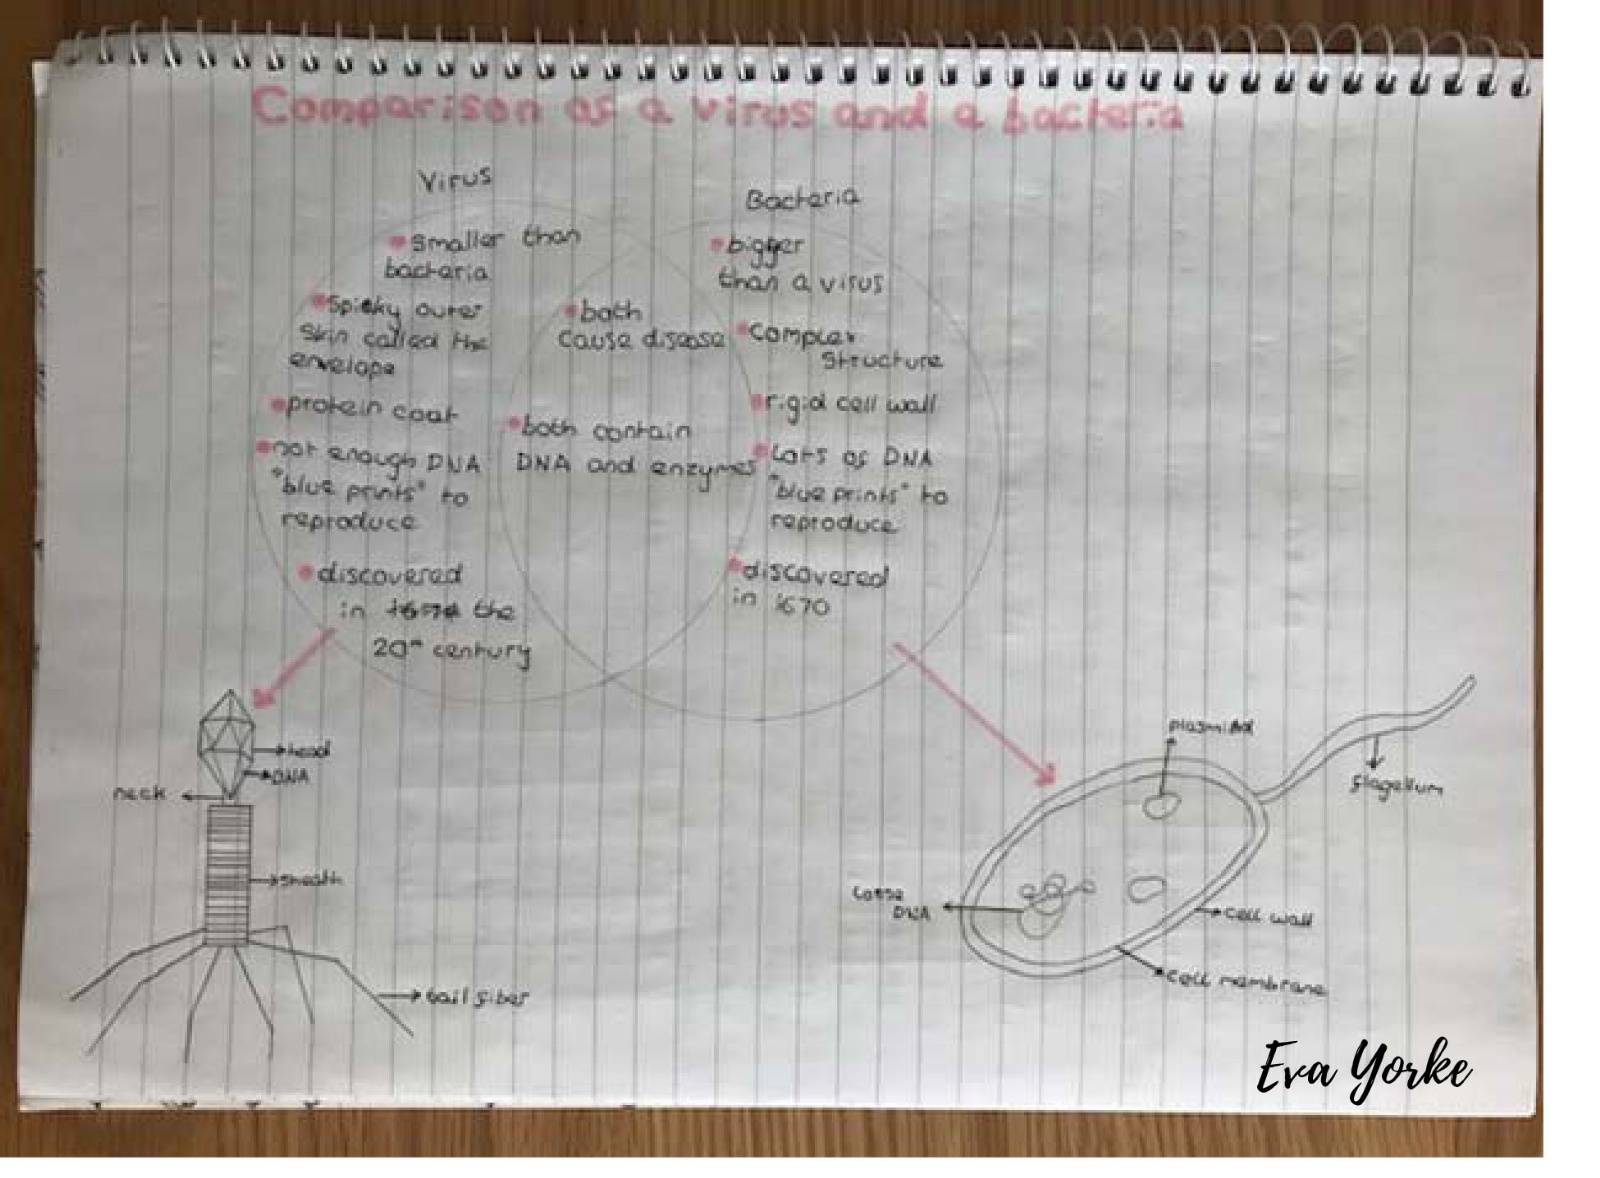 Comparison of a virus and a bacteria
Virus
smaller than
bacteria
Spicky outer
Skin called the
envelope
protein coat
not enough DNA
"blue prints" to
reproduce
discovered
in the
20th century
both
cause disease
both contain
DNA and enzymes
Bacteria
bigger
than a virus
Complex
Structure
rigid cell wall
Lots of DNA
"blue prints" to
reproduce
discovered
in 1670
head
DNA
neck
sheath
tail fiber
plasmid
flagellum
Loose
DNA
cell wall
cell membrane
Eva Yorke